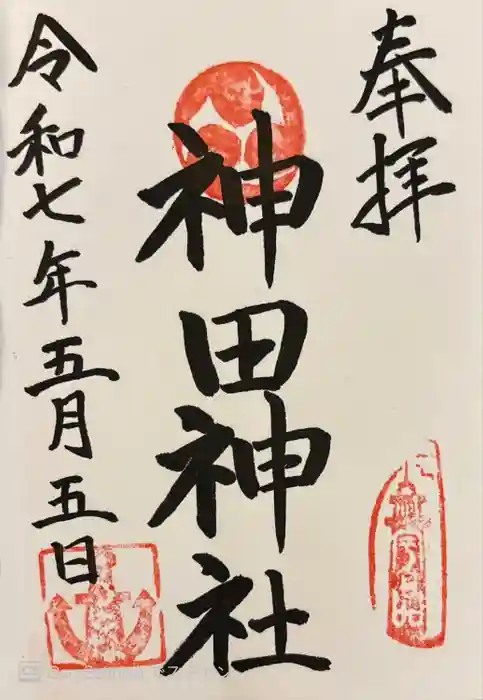 奉拝
神田神社
令和七年五月五日